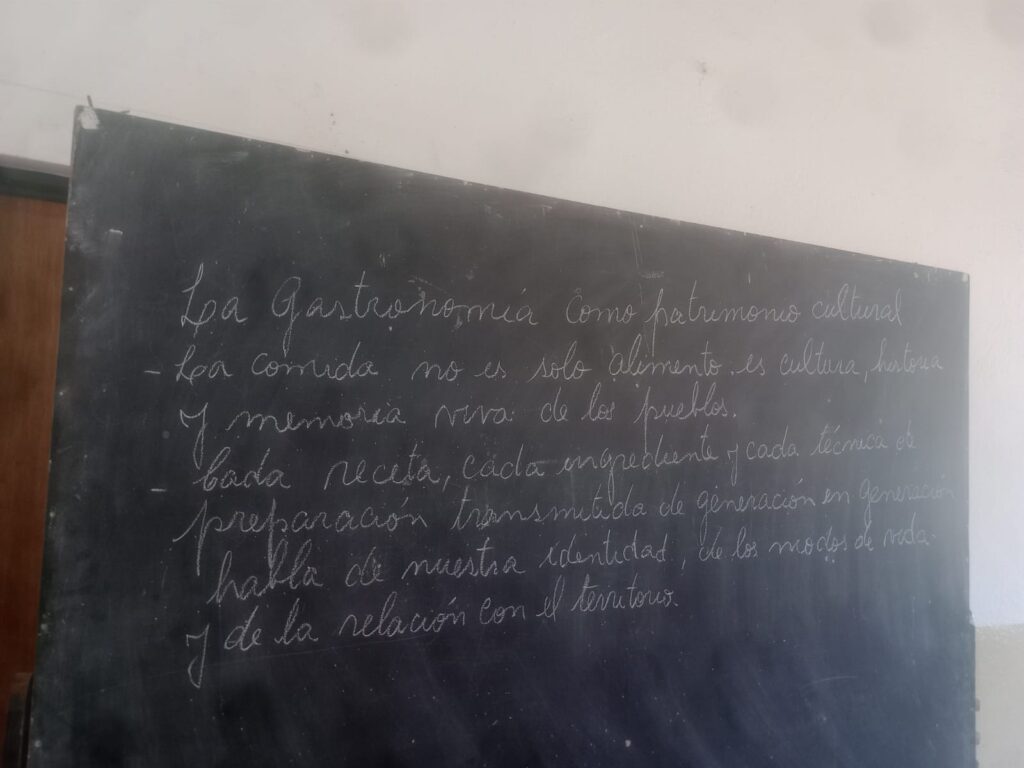 La Gastronomía como patrimonio cultural
- La comida no es solo alimento. es cultura, historia
y memoria viva de los pueblos.
- Cada receta, cada ingrediente y cada técnica de
preparación transmitida de generación en generación
habla de nuestra identidad, de los modos de vida
y de la relación con el territorio.